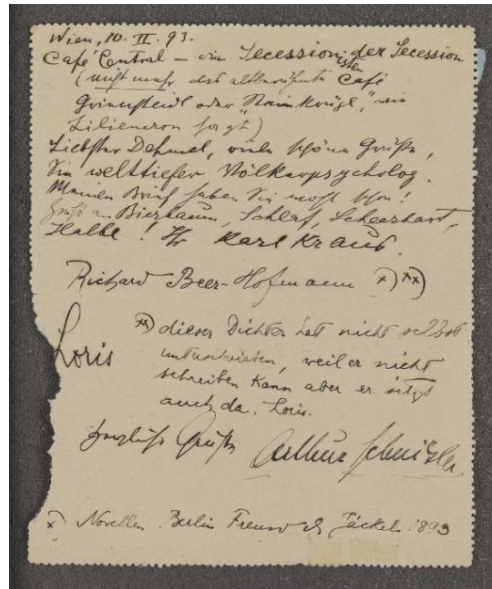 Wien, 10. II. 93.
Café Central – ein Secession der Secession
sten
(nicht mehr das altberühmte Café
Griensteidl oder "Steinkrügl", wie
Liliencron sagt)
Liebster Dehmel, viele schöne Grüße,
Sie welttiefer Völkerpsycholog.
Meinen Brief haben Sie wohl schon!
Gruß an Bierbaum, Schlaf, Scheerbart,
Halbe! Ihr Karl Kraus.
Richard Beer-Hofmann x) xx)
xx) dieser Dichter hat nicht selbst
Loris unterschrieben, weil er nicht
schreiben kann aber er sitzt
auch da. Loris.
herzliche Grüße Arthur Schnitzler
x) Novellen. Berlin Freund & Jäckel 1893